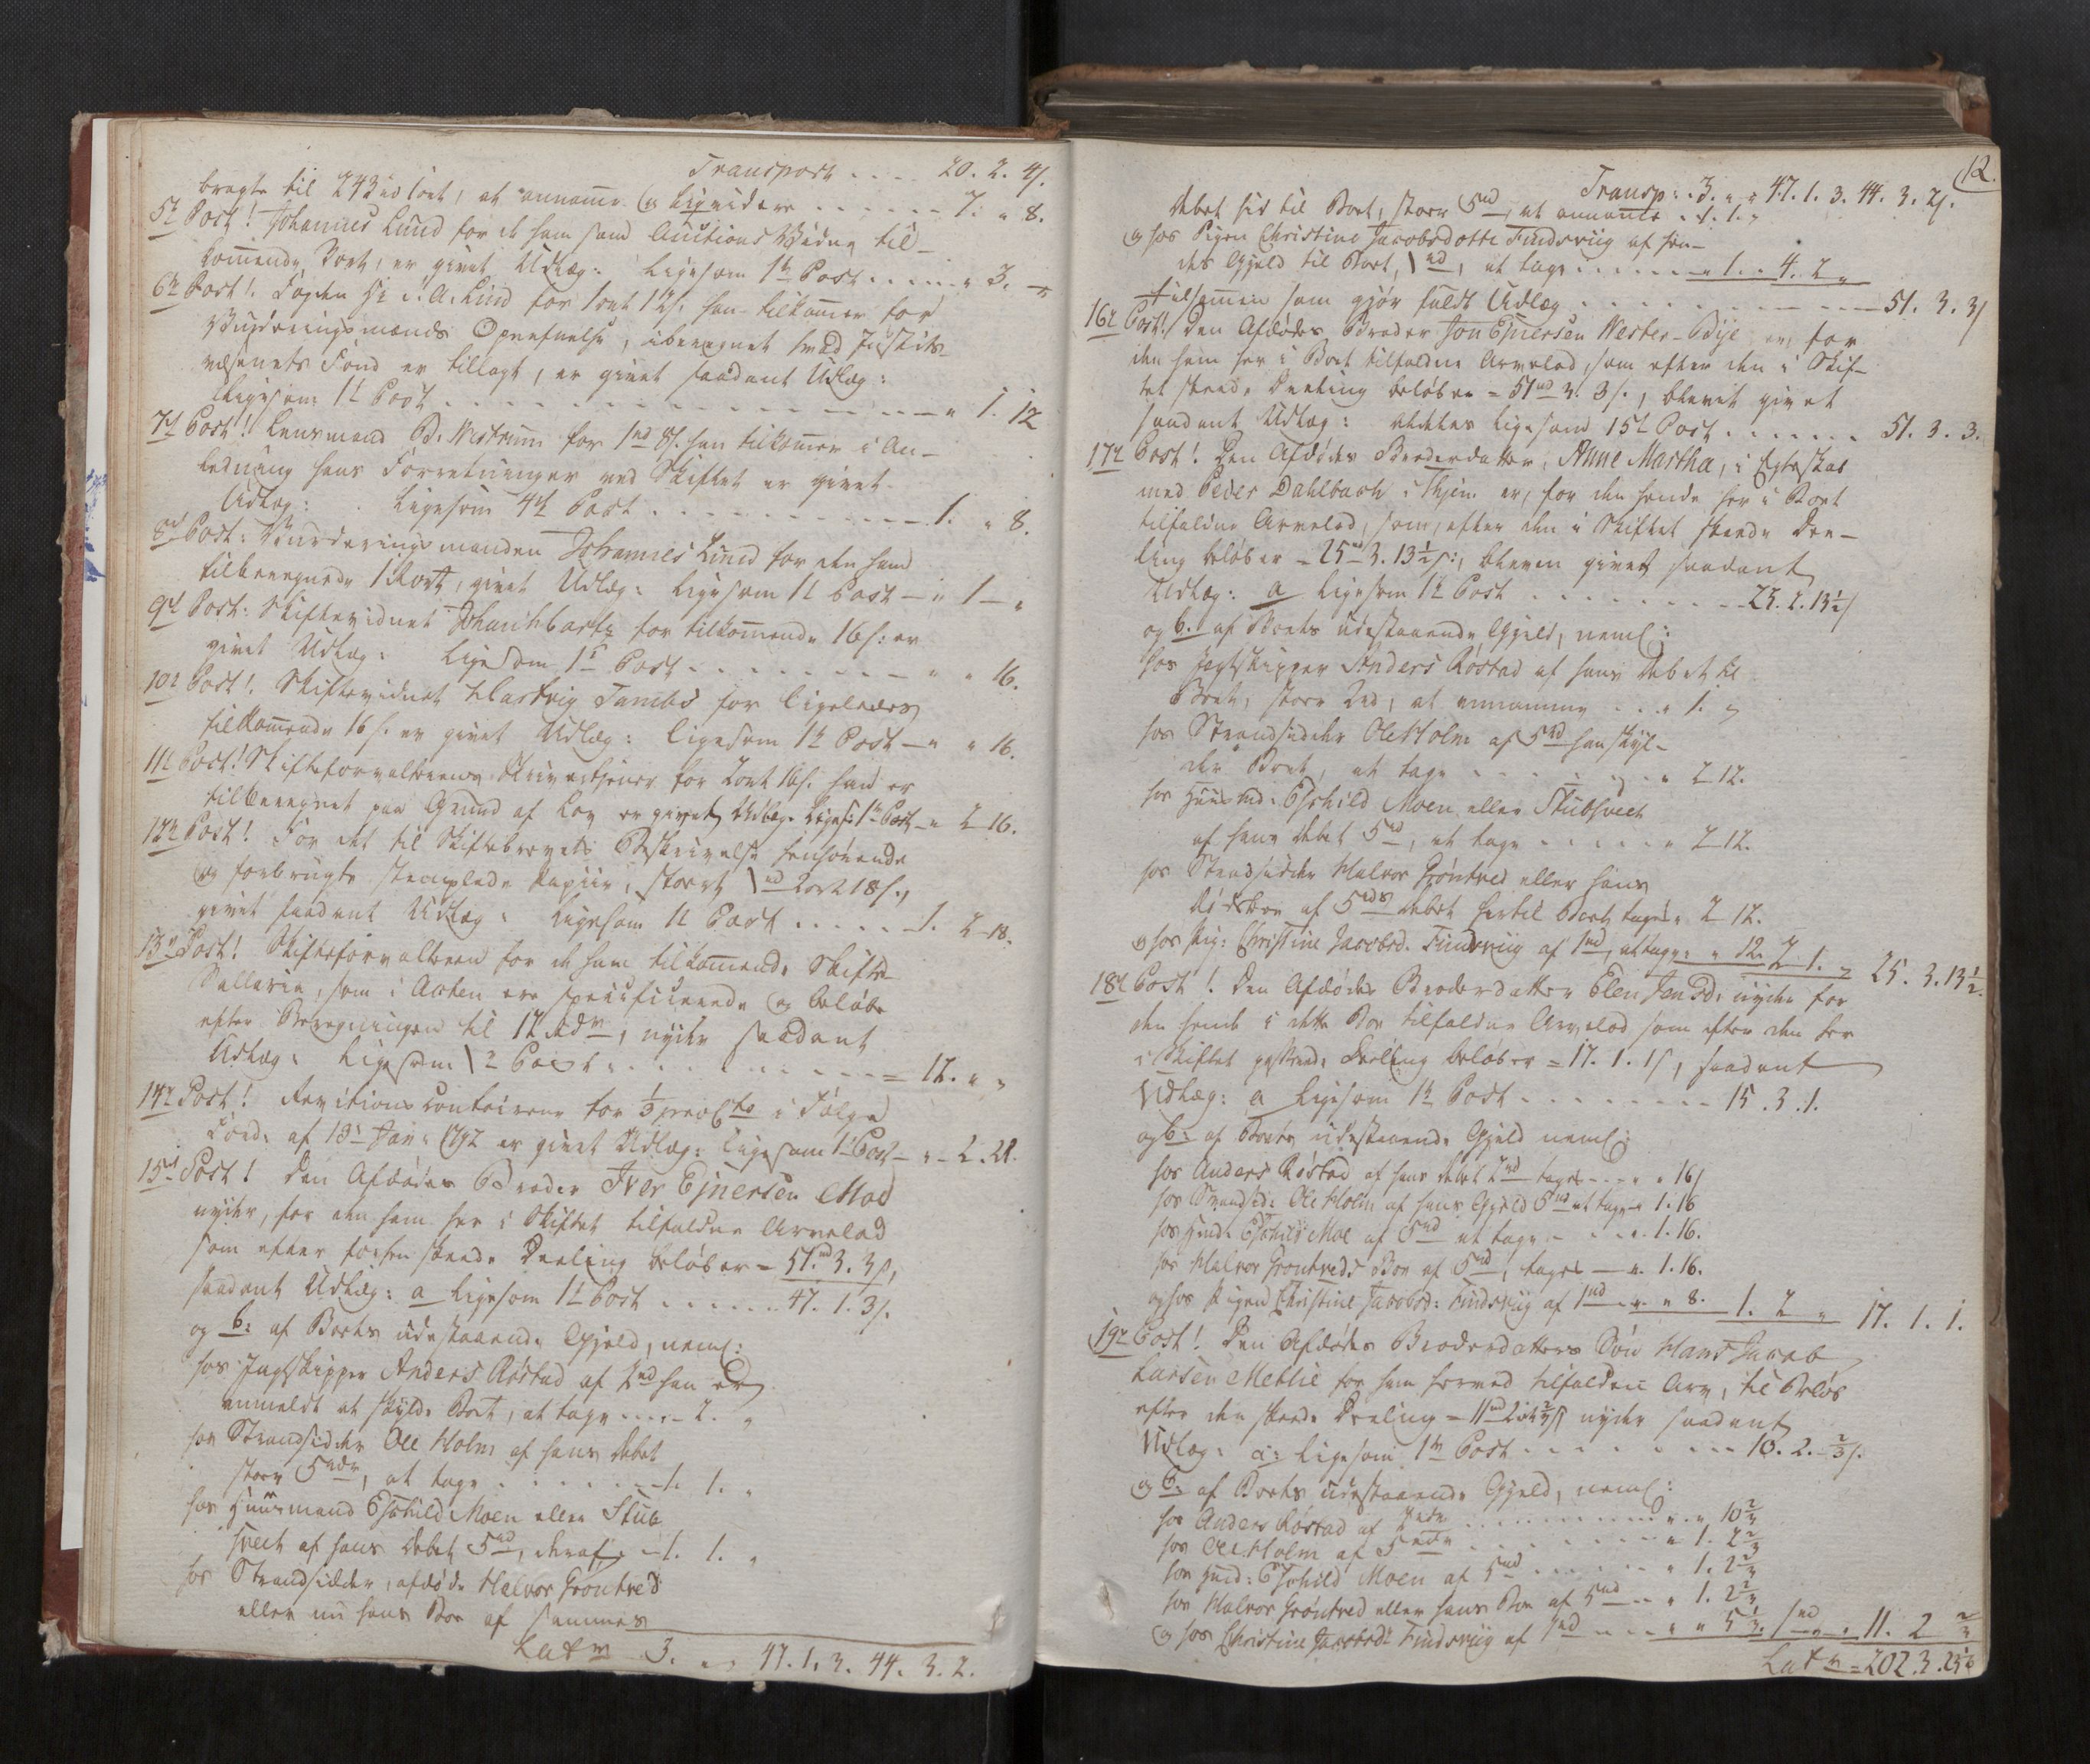 Transport . . . . 20. 2. 4ſ.
bragte til 243 ort, at annamme og liqvidere . . . . . . 7. " 8.
5te Post! Johannes Lund for de ham som Auctions Vidne til-
kommende 3 ort, er givet Udlæg: Ligesom 1te Post . . . . . " 3. "
6te Post! Fogden Hr. A. Lind for 1 ort 12ſ. han tilkommer for
Vurderingsmænds Opnefnelse, iberegnet hvad Justits-
væsenets Fond er tillagt, er givet saadant Udlæg:
Ligesom 1te Post . . . . . . . . . . . . " 1. 12
7de Post! Lensmand B. Westrum for 1 rd 8ſ. han tilkommer i An-
ledning hans Forretninger ved Skiftet er givet
Udlæg: Ligesom 4de Post . . . . . . . . . . 1. " 8.
8de Post: Vurderingsmanden Johannes Lund for den ham
tilberegnede 1 Ort, givet Udlæg: Ligesom 1te Post — " 1 — "
9de Post: Skiftevidnet for tilkommende 16ſ: er
givet Udlæg: Ligesom 1te Post . . . . . . . . " " 16.
10de Post! Skiftevidnet Hartvig Tambs for ligeledes
tilkommende 16ſ. er givet Udlæg: Ligesom 1te Post — " " 16.
11te Post! Skifteforvalterens Skrivertjener for 2 ort 16ſ. han er
tilberegnet paa Grund af Lov er givet Udlæg. Liges: 1te Post — " 2 16.
12te Post! For det til Skiftebrevets Beskrivelse henhørende
og forbrugte stemplede Papiir, stort 1 rd 2 ort 18ſ.,
givet saadant Udlæg: Ligesom 1te Post . . . . . . 1. 2 18.
13de Post! Skifteforvalteren for de ham tilkommende Skifte
Sallaria, som i Acten ere specificerede og beløbe
efter Beregningen til 12 Rdr, nyder saadant
Udlæg: Ligesom 1te Post . . . . . . . . . = 12. " "
14de Post! Revitions Contoirene for 1/3 proCto i Følge
Ford: af 13de Jan: 1792 er givet Udlæg: Ligesom 1te Post — " 2. 21.
15de Post! Den Afdødes Broder Iver Ejnersen Moe
nyder, for den ham her i Skiftet tilfaldne Arvelod
som efter forhen skeede Deeling beløber = 51 rd 3. 3ſ,
saadant Udlæg: a Ligesom 1te Post . . . . . . 47. 1. 3ſ.
og b: af Boets udestaaende Gjeld, neml:
hos Jagtskipper Anders Røstad af 2 rd han er
anmeldt at skylde Boet, at tage . . . . 2. "
hos Strandsidder Ole Holm af hans Debet
stor 5 rdr, at tage . . . . . . . 1. 1. "
hos Huusmand Eskild Moen eller Stub
sveet af hans Debet 5 rd, deraf . . 1. 1. "
hos Strandsidder, afdøde Halvor Grøntved
eller nu hans Boe af sammes
Latus 3. " " 47. 1. 3. 44. 3. 2.
12.
Transp: . 3. " " 47. 1. 3. 44. 3. 2ſ.
Debet hid til Boet, stor 5 rd, at annamme . 1. 1. "
og hos Pigen Christine Jacobsdotte Findsviig af hen-
des Gjeld til Boet, 1 rd, at tage . . . . . . " 1. " 4. 2 "
tilsammen som gjør fuldt Udlæg . . . . . . . . . 51. 3. 3ſ
16de Post! Den Afdødes Broder Jon Ejnersen Wester-Bye er, for
den ham her i Boet tilfaldne Arvelod, som efter den i Skif-
tet skeede Deeling beløber = 51 rd 3. 3ſ., blevet givet
saadant Udlæg: aldeles ligesom 15de Post . . . . . . . 51. 3. 3.
17de Post! Den Afdødes Broderdatter, Anne Martha, i Egteskab
med Peder Dahlbach i Thjem er, for den hende her i Boet
tilfaldne Arvelod, som, efter den i Skiftet skeede Dee-
ling beløber = 25 rd 3. 13½ſ:, bleven givet saadant
Udlæg: a Ligesom 1te Post . . . . . . . . 23. 2. 13½ſ
og b. af Boets udestaaende Gjeld, neml:
hos Jagtskipper Anders Røstad af hans Debet til
Boet, stor 2 rd, at annamme . . . " 1. "
hos Strandsidder Ole Holm af 5 rd han skyl-
der Boet, at tage . . . . . . . . " 2 12.
hos Huusmd: Eskild Moen eller Stubsveet
af hans Debet 5 rd, at tage . . . . . . " 2 12.
hos Strandsidder Halvor Grøntved eller hans
Dødsboe af 5 rdrs Debet hertil Boet, tages " 2 12.
og hos Pig: Christine Jacobsd. Findsviig af 1 rd, at tage: " 12. 2. 1. " 25. 3. 13½.
18de Post! Den Afdødes Broderdatter Elen Jensd: nyder for
den hende i dette Boe tilfaldne Arvelod som efter den her
i Skiftet passerede Deeling beløber = 17. 1. 1ſ, saadant
Udlæg: a Ligesom 1te Post . . . . . . . . . 15. 3. 1.
og b: af Boets udestaaende Gjeld neml:
hos Anders Røstad af hans Debet 2 rd tages . . . " " 16ſ
hos Strandsid: Ole Holm af hans Gjeld 5 rd at tage " 1. 16
hos Hmd: Eskild Moe af 5 rd at tage . . . " 1. 16.
hos Halvor Grøntveds Boe af 5 rd, tages — " 1. 16.
og hos Pigen Christine Jacobsd: Findsviig af 1 rd . " " 8. 1. 2 " 17. 1. 1.
19de Post! Den Afdødes Broderdatters Søn Hans Jacob
Larsen Mehlie for ham herved tilfalden Arv, til Beløb
efter den skeede Deeling = 11 rd 2 ort 2/3ſ nyder saadant
Udlæg: a: Ligesom 1te Post . . . . . . . . 10. 2. 2/3ſ.
og b. af Boets udestaaende Gjeld, neml:
hos Anders Røstad af 2 rdr . . . . . . . . . " " 10 2/3
hos Ole Holm af 5 rdr . . . . . . . . " 1. 2 2/3
hos Hmd: Eskild Moen af 5 rd . . . . . . " 1. 2 2/3
hos Halvor Grøntved eller hans Boe af 5 rd . . " 1. 2 2/3
og hos Christine Jacobsd: Findsviig af 1 rd . . . " " 5 1/3. 1 rd " " 11. 2 2/3
Latus = 202. 3.